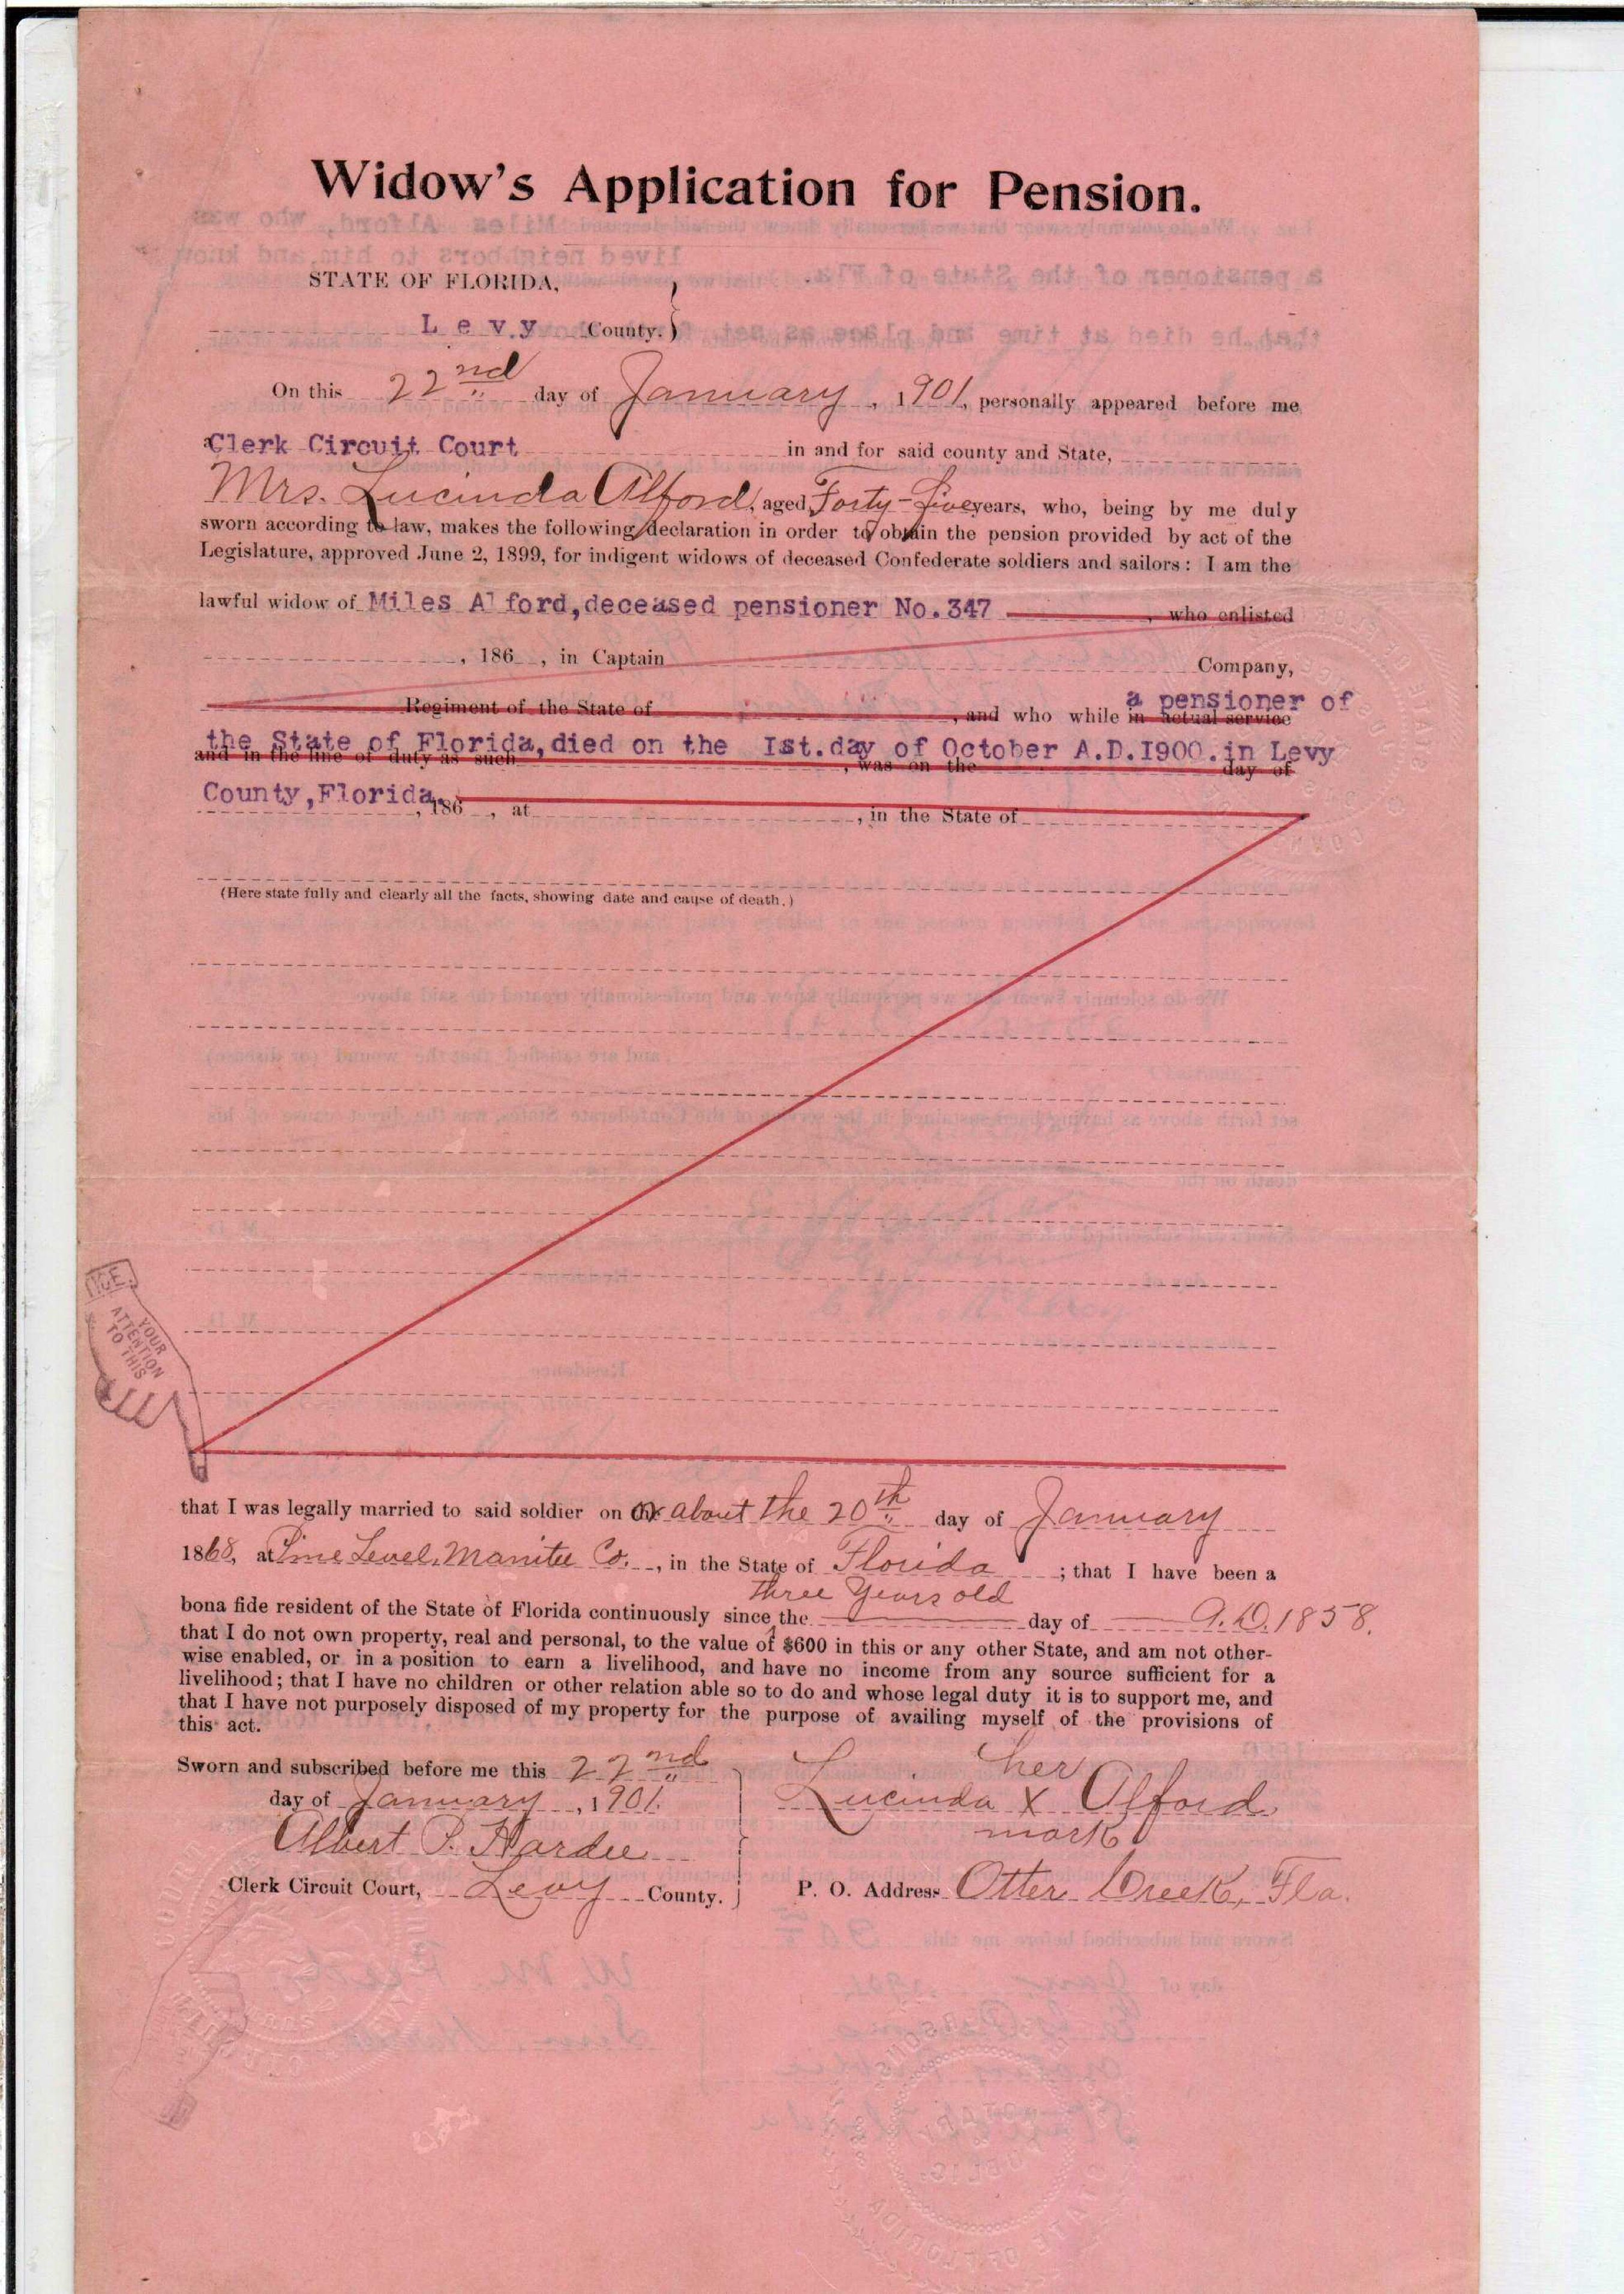 Widow's Application for Pension.
STATE OF FLORIDA,
Levy County. }
On this 22nd day of January, 1901, personally appeared before me
a Clerk Circuit Court in and for said county and State,
Mrs. Lucinda Alford, aged Forty-five years, who, being by me duly
sworn according to law, makes the following declaration in order to obtain the pension provided by act of the
Legislature, approved June 2, 1899, for indigent widows of deceased Confederate soldiers and sailors: I am the
lawful widow of Miles Alford, deceased pensioner No. 347, who enlisted
, 186 , in Captain Company,
a pensioner of
Regiment of the State of , and who while in actual service
the State of Florida, died on the Ist. day of October A.D. I900. in Levy
and in the line of duty as such , was on the day of
County, Florida.
, 186 , at , in the State of
(Here state fully and clearly all the facts, showing date and cause of death.)
YOUR
ATTENTION
TO THIS
that I was legally married to said soldier on the or about the 20th day of January
1868, at Pine Level, Manitee Co., in the State of Florida; that I have been a
three Years old
bona fide resident of the State of Florida continuously since the day of A.D. 1858.
that I do not own property, real and personal, to the value of $600 in this or any other State, and am not other-
wise enabled, or in a position to earn a livelihood, and have no income from any source sufficient for a
livelihood; that I have no children or other relation able so to do and whose legal duty it is to support me, and
that I have not purposely disposed of my property for the purpose of availing myself of the provisions of
this act.
Sworn and subscribed before me this 22nd
day of January, 1901.
Albert P. Hardee
Clerk Circuit Court, Levy County. }
her
Lucinda X Alford
mark
P. O. Address Otter Creek, Fla.